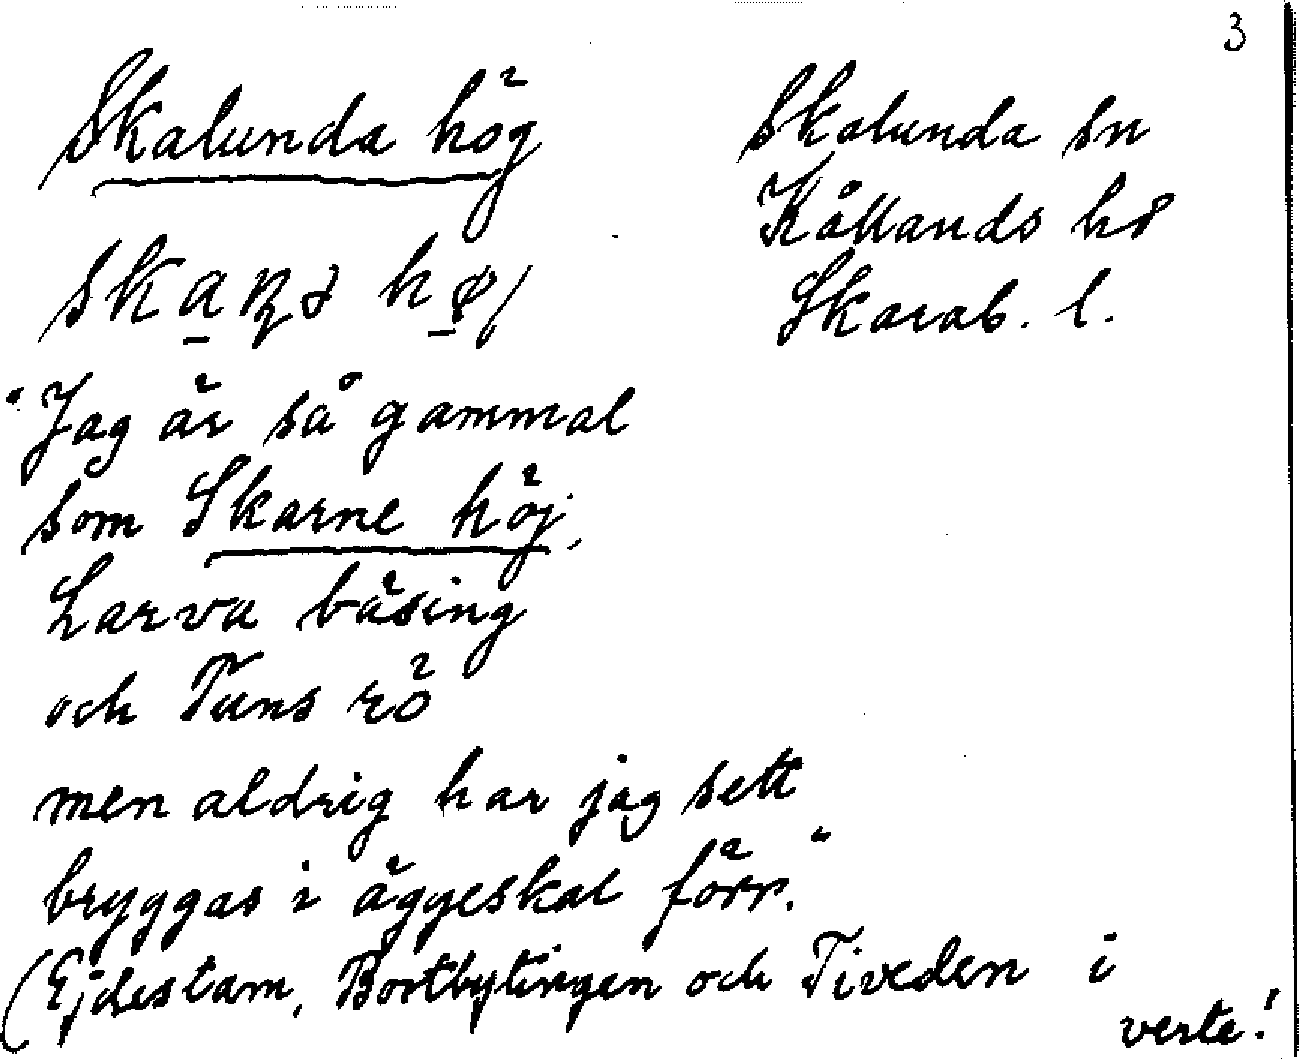 3
Skalunda hög
Skalunda sn
Kållands hd
Skarab. l.
"Jag är så gammal
som Skarne höj,
Larva bäsing
och Tuns rö
men aldrig har jag sett
bryggas i äggeskal förr."
(Ejdestam, Bortbytingen och Tiveden i
verte!